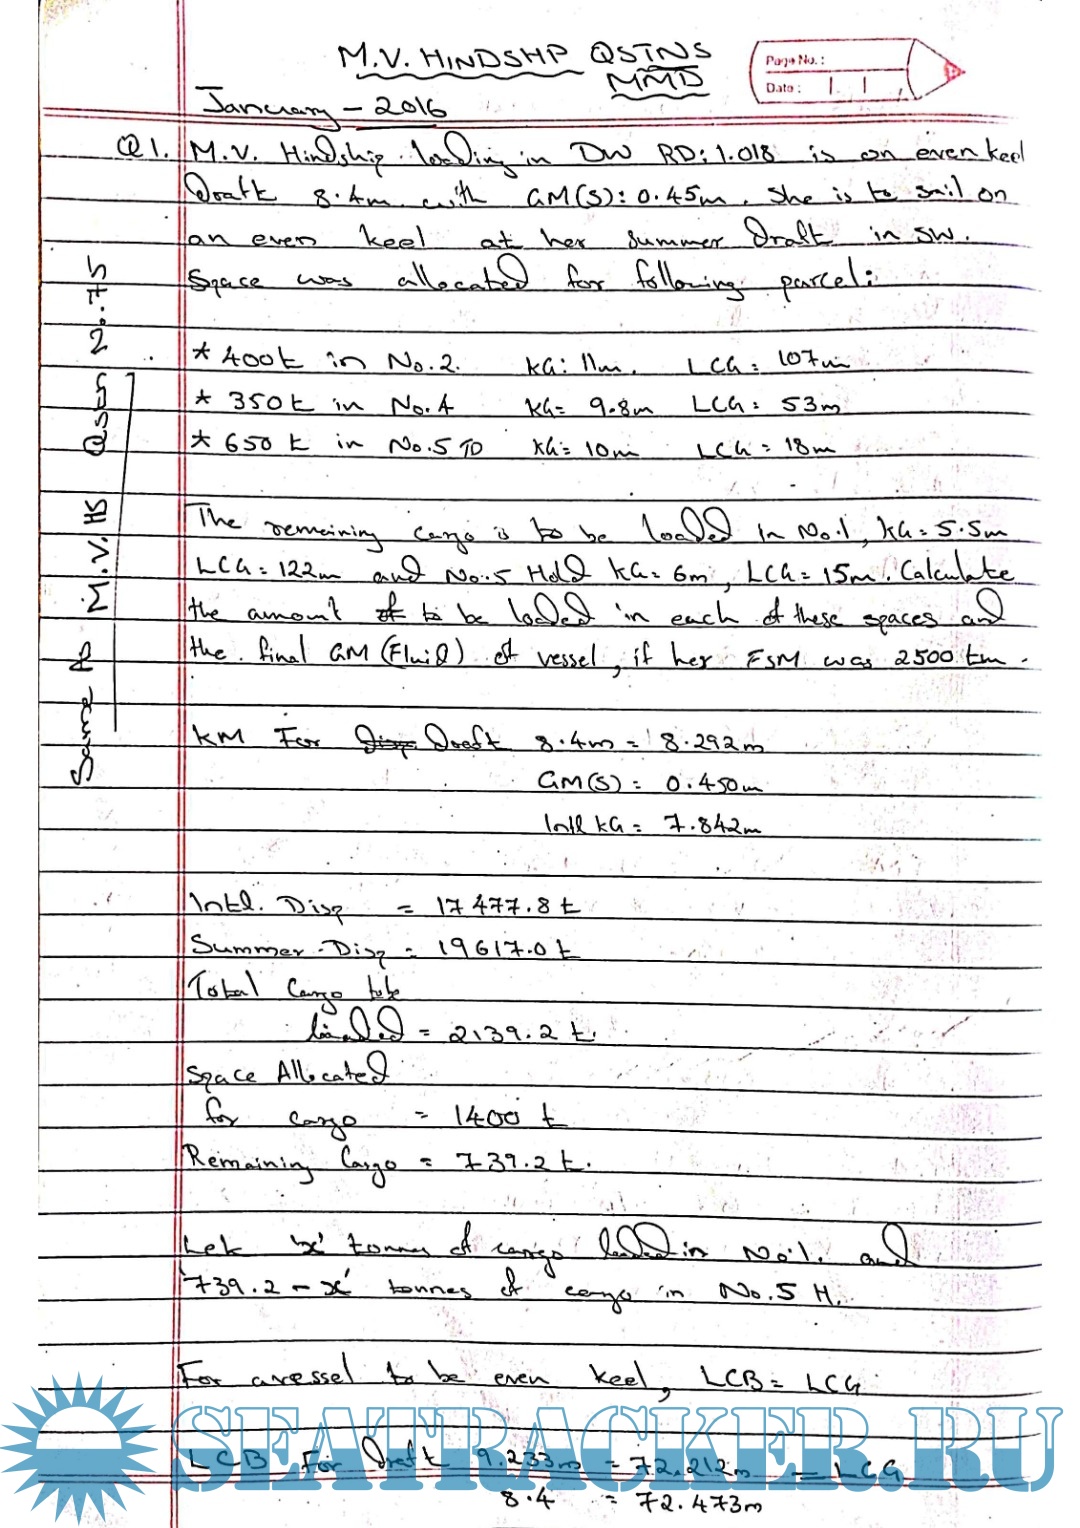 M.V. HINDSHP QSTNS
MMD
Page No.:
Date:
January - 2016
Q1. M.V. Hindship loading in DW RD: 1.018 is on even keel
Draft 8.4m with GM(S): 0.45m. She is to sail on
an even keel at her summer Draft in SW.
Space was allocated for following parcel:
* 400t in No.2. KG: 11m. LCG: 107m
* 350t in No.4 KG= 9.8m LCG: 53m
* 650t in No.5 TD KG= 10m LCG = 18m
The remaining cargo is to be loaded in No.1, KG= 5.5m
LCG= 122m and No.5 Hold KG= 6m, LCG= 15m. Calculate
the amount to be loaded in each of these spaces and
the final GM (Fluid) of vessel, if her FSM was 2500 tm.
Same As M.V. HS Qstn 2..75
KM For Draft 8.4m = 8.292m
GM(S) = 0.450m
Intl KG = 7.842m
Intl. Disp = 17477.8t
Summer Disp = 19617.0t
Total Cargo tobe
loaded = 2139.2 t.
Space Allocated
for cargo = 1400 t
Remaining Cargo = 739.2t.
Let 'x' tonnes of cargo loaded in No.1. and
'739.2 - x' tonnes of cargo in No.5 H.
For a vessel to be even keel, LCB = LCG
LCB For Draft 9.233m = 72.212m = LCG
8.4 = 72.473m
SEATRACKER.RU